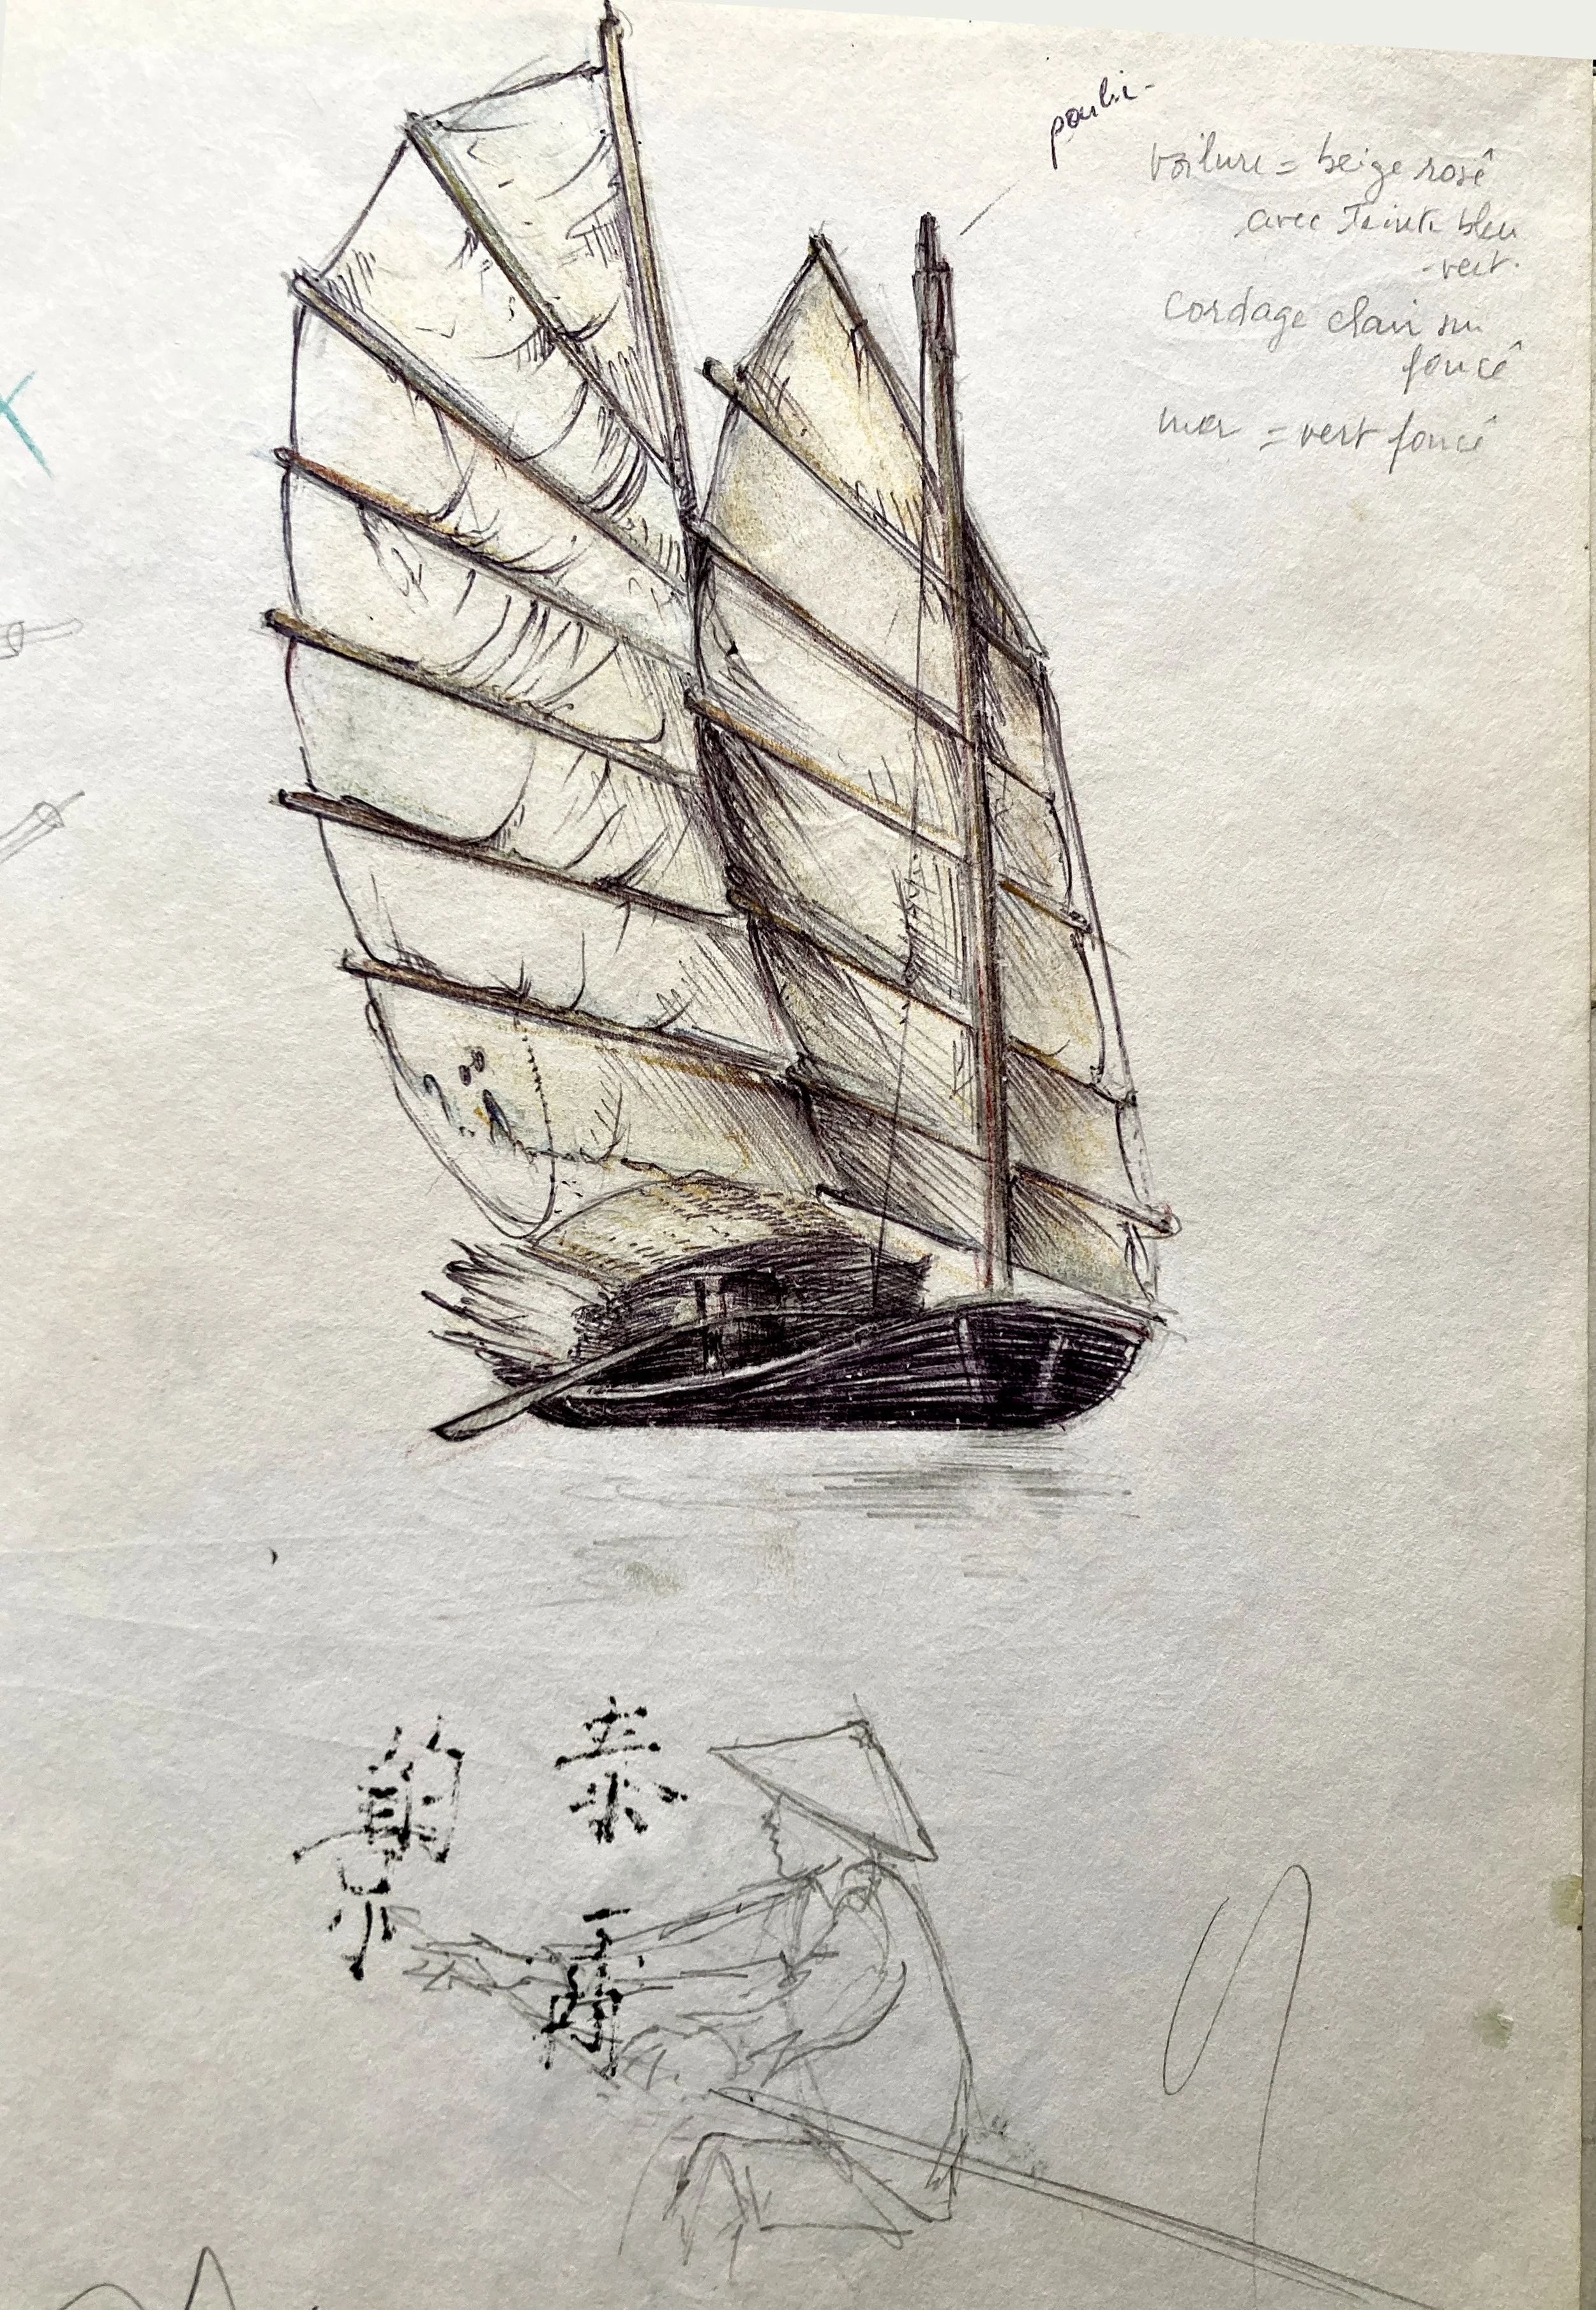 poulie
voilure = beige rosé
avec Teinte bleu
-vert.
Cordage clair sur
foncé
mer = vert foncé
泰